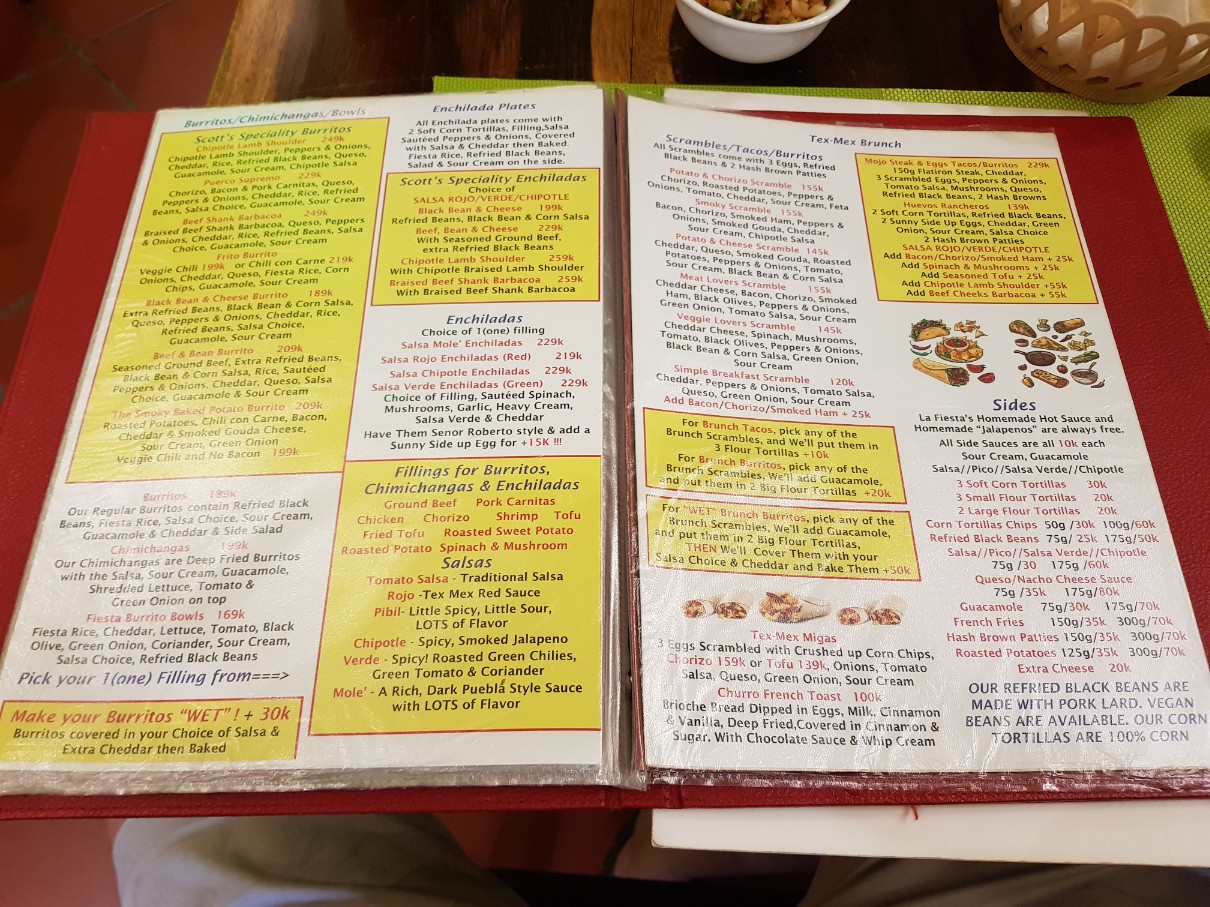 Burritos/Chimichangas/Bowls
Scott's Speciality Burritos
Chipotle Lamb Shoulder 249k
Chipotle Lamb Shoulder, Peppers & Onions,
Cheddar, Rice, Refried Black Beans, Queso,
Guacamole, Sour Cream, Chipotle Salsa
Puerco Supremo 229k
Chorizo, Bacon & Pork Carnitas, Queso,
Peppers & Onions, Cheddar, Rice, Refried
Beans, Salsa Choice, Guacamole, Sour Cream
Beef Shank Barbacoa 249k
Braised Beef Shank Barbacoa, Queso, Peppers
& Onions, Cheddar, Rice, Refried Beans, Salsa
Choice, Guacamole, Sour Cream
Frito Burrito
Veggie Chili 199k or Chili con Carne 219k
Onions, Cheddar, Queso, Fiesta Rice, Corn
Chips, Guacamole, Sour Cream
Black Bean & Cheese Burrito 189k
Extra Refried Beans, Black Bean & Corn Salsa,
Queso, Peppers & Onions, Cheddar, Rice,
Refried Beans, Salsa Choice,
Guacamole, Sour Cream
Beef & Bean Burrito 209k
Seasoned Ground Beef, Extra Refried Beans,
Black Bean & Corn Salsa, Rice, Sautéed
Peppers & Onions, Cheddar, Queso, Salsa
Choice, Guacamole & Sour Cream
The Smoky Baked Potato Burrito 209k
Roasted Potatoes, Chili con Carne, Bacon,
Cheddar & Smoked Gouda Cheese,
Sour Cream, Green Onion
Veggie Chili and No Bacon 199k
Burritos 189k
Our Regular Burritos contain Refried Black
Beans, Fiesta Rice, Salsa Choice, Sour Cream,
Guacamole & Cheddar & Side Salad
Chimichangas 199k
Our Chimichangas are Deep Fried Burritos
with the Salsa, Sour Cream, Guacamole,
Shredded Lettuce, Tomato &
Green Onion on top
Fiesta Burrito Bowls 169k
Fiesta Rice, Cheddar, Lettuce, Tomato, Black
Olive, Green Onion, Coriander, Sour Cream,
Salsa Choice, Refried Black Beans
Pick your 1(one) Filling from===>
Make your Burritos "WET" ! + 30k
Burritos covered in your Choice of Salsa &
Extra Cheddar then Baked
Enchilada Plates
All Enchilada plates come with
2 Soft Corn Tortillas, Filling,Salsa
Sautéed Peppers & Onions, Covered
with Salsa & Cheddar then Baked.
Fiesta Rice, Refried Black Beans,
Salad & Sour Cream on the side.
Scott's Speciality Enchiladas
Choice of
SALSA ROJO/VERDE/CHIPOTLE
Black Bean & Cheese 199k
Refried Beans, Black Bean & Corn Salsa
Beef, Bean & Cheese 229k
With Seasoned Ground Beef,
extra Refried Black Beans
Chipotle Lamb Shoulder 259k
With Chipotle Braised Lamb Shoulder
Braised Beef Shank Barbacoa 259k
With Braised Beef Shank Barbacoa
Enchiladas
Choice of 1(one) filling
Salsa Mole' Enchiladas 229k
Salsa Rojo Enchiladas (Red) 219k
Salsa Chipotle Enchiladas 229k
Salsa Verde Enchiladas (Green) 229k
Choice of Filling, Sautéed Spinach,
Mushrooms, Garlic, Heavy Cream,
Salsa Verde & Cheddar
Have Them Senor Roberto style & add a
Sunny Side up Egg for +15K !!!
Fillings for Burritos,
Chimichangas & Enchiladas
Ground Beef Pork Carnitas
Chicken Chorizo Shrimp Tofu
Fried Tofu Roasted Sweet Potato
Roasted Potato Spinach & Mushroom
Salsas
Tomato Salsa - Traditional Salsa
Rojo -Tex Mex Red Sauce
Pibil- Little Spicy, Little Sour,
LOTS of Flavor
Chipotle - Spicy, Smoked Jalapeno
Verde - Spicy! Roasted Green Chilies,
Green Tomato & Coriander
Mole' - A Rich, Dark Puebla Style Sauce
with LOTS of Flavor
Tex-Mex Brunch
Scrambles/Tacos/Burritos
All Scrambles come with 3 Eggs, Refried
Black Beans & 2 Hash Brown Patties
Potato & Chorizo Scramble 155k
Chorizo, Roasted Potatoes, Peppers &
Onions, Tomato, Cheddar, Sour Cream, Feta
Smoky Scramble 155k
Bacon, Chorizo, Smoked Ham, Peppers &
Onions, Smoked Gouda, Cheddar,
Sour Cream, Chipotle Salsa
Potato & Cheese Scramble 145k
Cheddar, Queso, Smoked Gouda, Roasted
Potatoes, Peppers & Onions, Tomato,
Sour Cream, Black Bean & Corn Salsa
Meat Lovers Scramble 155k
Cheddar Cheese, Bacon, Chorizo, Smoked
Ham, Black Olives, Peppers & Onions,
Green Onion, Tomato Salsa, Sour Cream
Veggie Lovers Scramble 145k
Cheddar Cheese, Spinach, Mushrooms,
Tomato, Black Olives, Peppers & Onions,
Black Bean & Corn Salsa, Green Onion,
Sour Cream
Simple Breakfast Scramble 120k
Cheddar, Peppers & Onions, Tomato Salsa,
Queso, Green Onion, Sour Cream
Add Bacon/Chorizo/Smoked Ham + 25k
For Brunch Tacos, pick any of the
Brunch Scrambles, and We'll put them in
3 Flour Tortillas +10k
For Brunch Burritos, pick any of the
Brunch Scrambles, We'll add Guacamole,
and put them in 2 Big Flour Tortillas +20k
For "WET" Brunch Burritos, pick any of the
Brunch Scrambles, We'll add Guacamole,
and put them in 2 Big Flour Tortillas,
THEN We'll Cover Them with your
Salsa Choice & Cheddar and Bake Them +50k
Tex-Mex Migas
3 Eggs Scrambled with Crushed up Corn Chips,
Chorizo 159k or Tofu 139k, Onions, Tomato
Salsa, Queso, Green Onion, Sour Cream
Churro French Toast 100k
Brioche Bread Dipped in Eggs, Milk, Cinnamon
& Vanilla, Deep Fried,Covered in Cinnamon &
Sugar. With Chocolate Sauce & Whip Cream
Mojo Steak & Eggs Tacos/Burritos 229k
150g Flatiron Steak, Cheddar,
3 Scrambled Eggs, Peppers & Onions,
Tomato Salsa, Mushrooms, Queso,
Refried Beans, 2 Hash Browns
Huevos Rancheros 139k
2 Soft Corn Tortillas, Refried Black Beans,
2 Sunny Side Up Eggs, Cheddar, Green
Onion, Sour Cream, Salsa Choice
2 Hash Brown Patties
SALSA ROJO/VERDE/CHIPOTLE
Add Bacon/Chorizo/Smoked Ham + 25k
Add Spinach & Mushrooms + 25k
Add Seasoned Tofu + 25k
Add Chipotle Lamb Shoulder +55k
Add Beef Cheeks Barbacoa + 55k
Sides
La Fiesta's Homemade Hot Sauce and
Homemade "Jalapenos" are always free.
All Side Sauces are all 10k each
Sour Cream, Guacamole
Salsa//Pico//Salsa Verde//Chipotle
3 Soft Corn Tortillas 30k
3 Small Flour Tortillas 20k
2 Large Flour Tortillas 20k
Corn Tortillas Chips 50g /30k 100g/60k
Refried Black Beans 75g/ 25k 175g/50k
Salsa//Pico//Salsa Verde//Chipotle
75g /30 175g /60k
Queso/Nacho Cheese Sauce
75g /35k 175g/80k
Guacamole 75g/30k 175g/70k
French Fries 150g/35k 300g/70k
Hash Brown Patties 150g/35k 300g/70k
Roasted Potatoes 125g/35k 300g/70k
Extra Cheese 20k
OUR REFRIED BLACK BEANS ARE
MADE WITH PORK LARD. VEGAN
BEANS ARE AVAILABLE. OUR CORN
TORTILLAS ARE 100% CORN